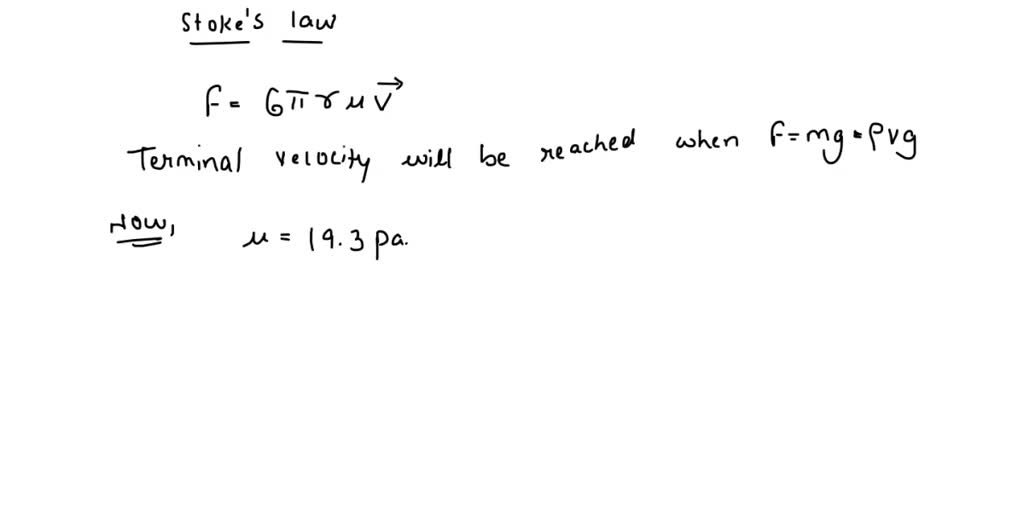 Stoke's law
F = 6πrμv⃗
Terminal velocity will be reached when F=mg=ρvg
Now, μ = 19.3 pa.